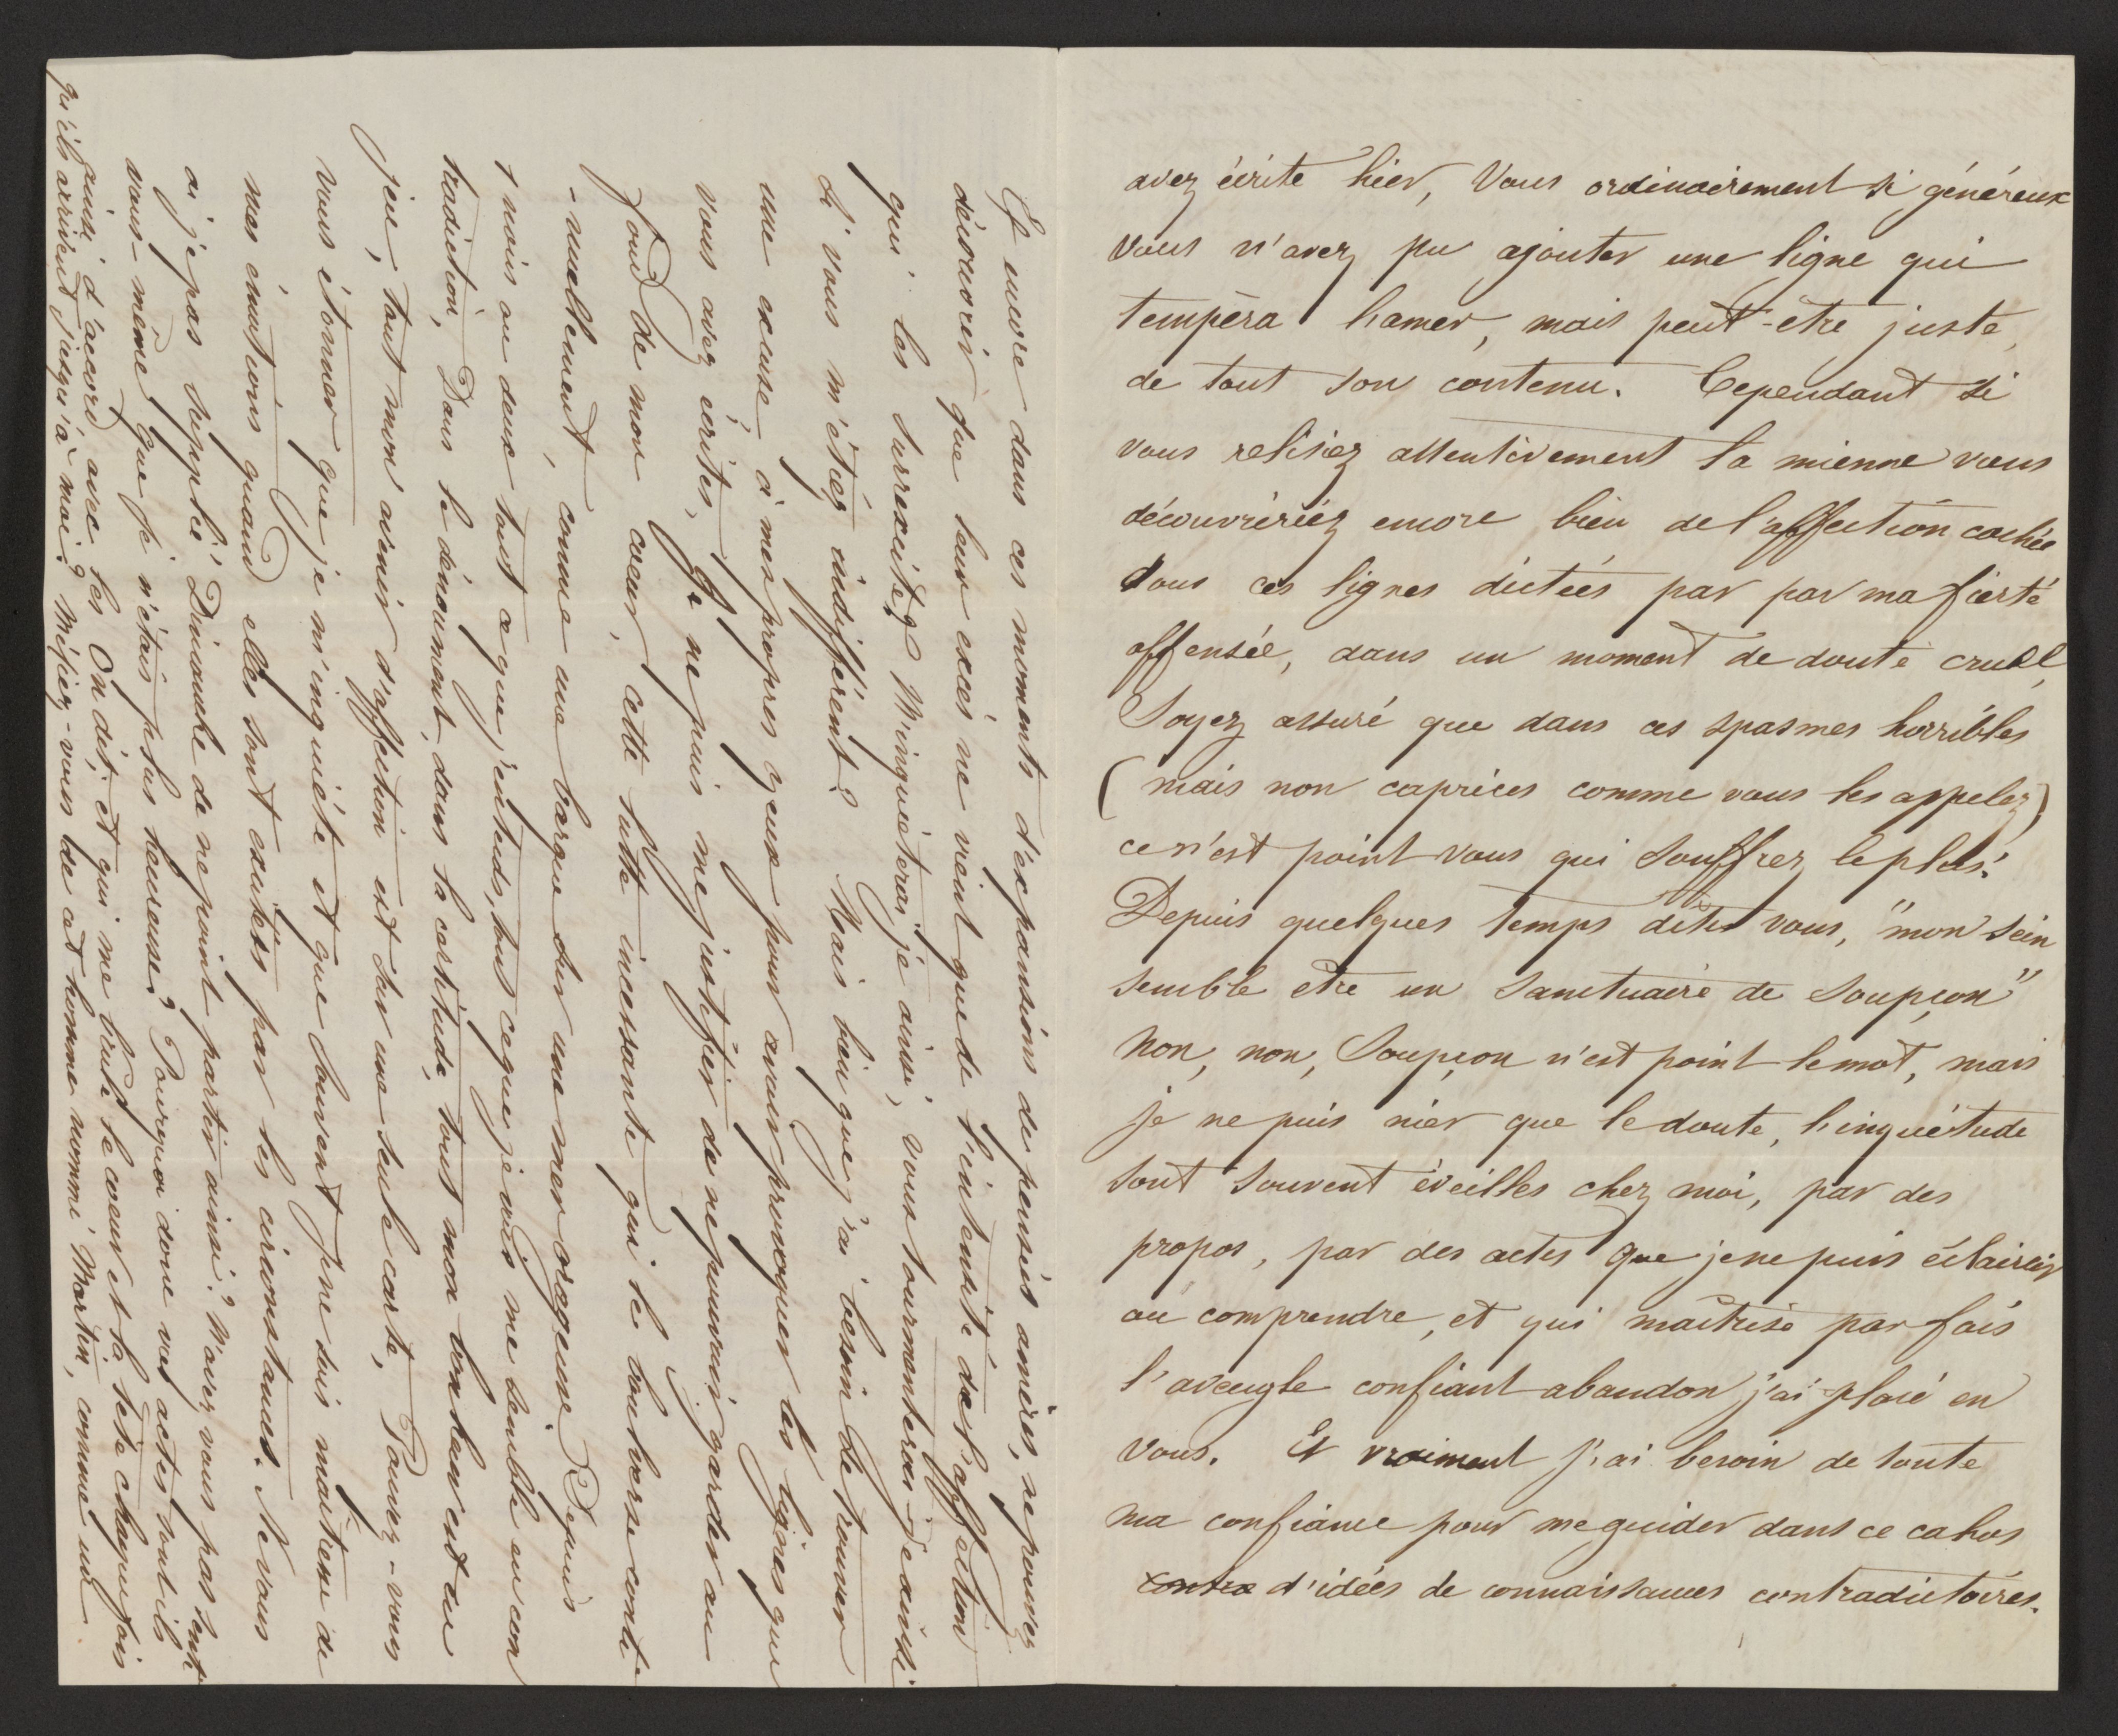 avez écrite hier, Vous ordinairement si généreux
vous n'avez pu ajouter une ligne qui
tempéra l'amer, mais peut-être juste,
de tout son contenu. Cependant si
vous relisiez attentivement la mienne vous
découvririez encore bien de l'affection cachée
sous ces lignes dictées par par ma fierté
offensée, dans un moment de doute cruel,
Soyez assuré que dans ces spasmes horribles
(mais non caprices comme vous les appelez)
ce n'est point vous qui souffrez le plus!
Depuis quelques temps dites vous, "mon sein
semble être un sanctuaire de soupçon"
Non, non, Soupçon n'est point le mot, mais
je ne puis nier que le doute, l'inquiétude
sont souvent éveilles chez moi, par des
propos, par des actes que je ne puis éclaircir
ou comprendre, et qui maitrise par fois
l'aveugle confiant abandon j'ai placé en
vous. Et vraiment j'ai besoin de toute
ma confiance pour me guider dans ce cahos
contra d'idées de connaissances contradictoires.
Et encore dans ces moments d'expansions de pensées amères, ne pouvez
découvrir que leur excés ne vient que de l'intensité de l'affection
qui les surrexcite? M'inquièterai je ainsi, vous tourmenterai-je ainsi
Si vous m'étiez indifférent? Mais bien que j'ai besoin de trouver
une excuse à mes propres yeux pour avoir provoquer les lignes que
vous avez écrites, je ne puis me justifier de ne pouvoir garder au
fond de mon coeur, cette lutte incessante qui le bouleverse conti
-nuellement, comme une barque sur une mer orageuse. Depuis
1 mois ou deux tout ce que j'entends, tout ce que je vois me semble en con
tradiction, Dans le dénoument, dans la certitude, tout mon bonheur est en
jeu, tout mon avenir d'affection est sur une seule carte, Pouvez-vous
vous étonner que je m'inquiéte et que souvent je ne suis maitresse de
mes émotions quand elles sont excitées par les circonstances. Ne vous
ai je pas supplié Dimanche de ne point partir ainsi? N'avez vous pas senti
vous-même que je n'étais plus heureuse? Pourquoi donc vos actes sont ils
puisé d'accord avec les On dit, et qui me brule le coeur et la tête chaque fois
qu'ils arrivent jusqu'à moi? Méfiez-vous de cet homme nommé Martin, comme un